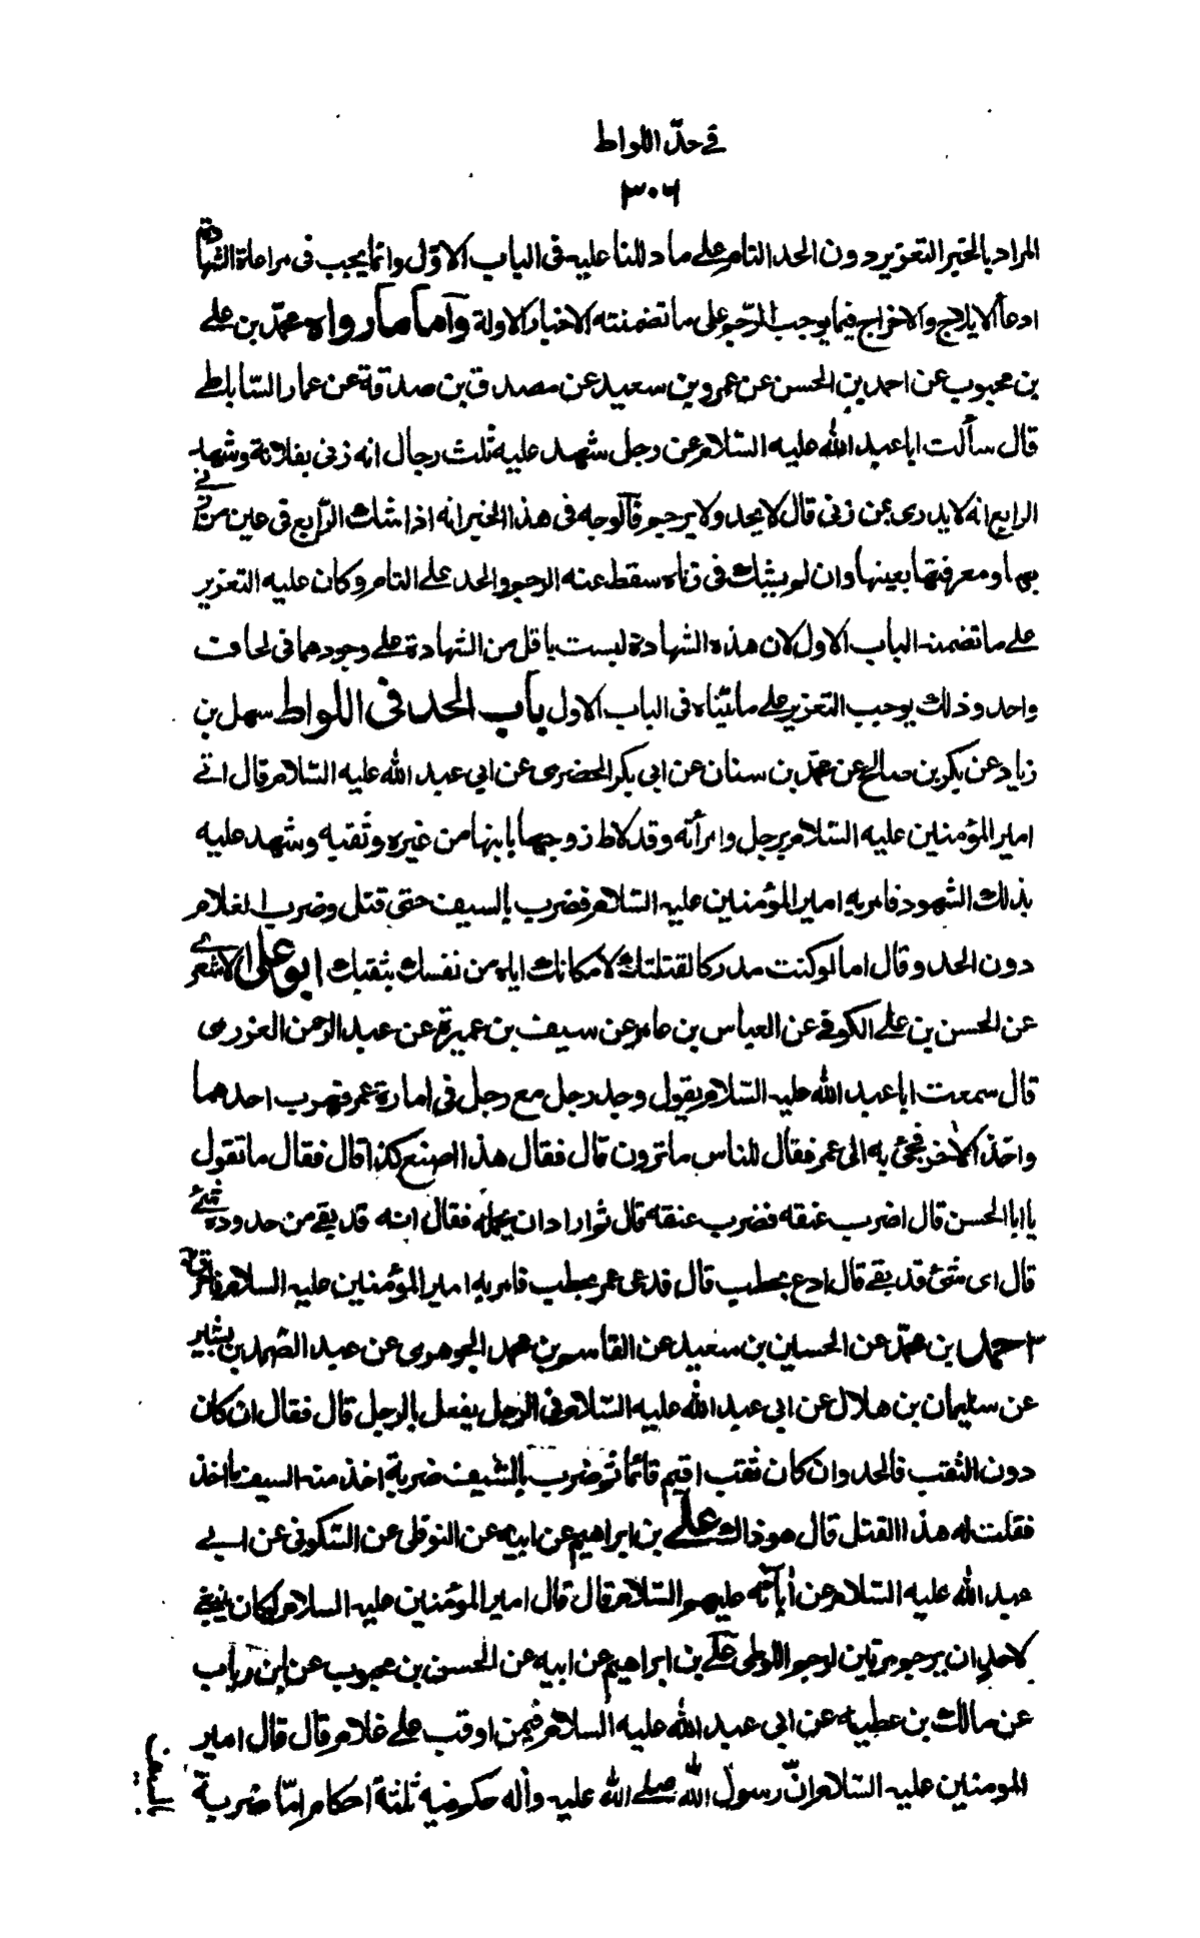 في حدّ اللواط
٣٠٦
المراد بالخبر التعزير دون الحد التام على ما دللنا عليه فى الباب الاوّل وانما يجب فى مراعاة الشهادة
ادعاء الايلاج والاخراج فيما يوجب الرّجم على ما تضمنته الاخبار الاولة وأما ما رواه محمّد بن على
بن محبوب عن احمد بن الحسن عن عمرو بن سعيد عن مصدق بن صدقة عن عمار السّاباطى
قال سألت ابا عبد الله عليه السّلام عن رجل شهد عليه ثلث رجال انه زنى بفلانة وشهد
الرابع انه لا يدرى بمن زنى قال لا يحد ولا يرجم فالوجه فى هذا الخبر انه اذا شك الرّابع فى عين من زنى
بها ومعرفتها بعينها وان لم يشك فى زناه سقط عنه الرجم والحد على التام وكان عليه التعزير
على ما تضمنه الباب الاول لان هذه الشهادة ليست باقل من الشهادة على وجودهما فى لحاف
واحد وذلك يوجب التعزير على ما بيّناه فى الباب الاول باب الحد فى اللواط سهل بن
زياد عن بكر بن صالح عن محمّد بن سنان عن ابى بكر الحضرمى عن ابي عبد الله عليه السّلام قال اتى
امير المؤمنين عليه السّلام برجل وامرأته وقد لاط زوجها بابنها من غيره وثقبه وشهد عليه
بذلك الشهود فامر به امير المؤمنين عليه السّلام فضرب بالسيف حتى قتل وضرب الغلام
دون الحد وقال اما لو كنت مدركا لقتلتك لامكانك اياه من نفسك بثقبك ابو على الاشعرى
عن الحسن بن على الكوفى عن العباس بن عامر عن سيف بن عميرة عن عبد الرحمن العزرمى
قال سمعت ابا عبد الله عليه السّلام يقول وجد رجل مع رجل فى امارة عمر فهرب احدهما
واخذ الاخر فجئ به الى عمر فقال للناس ما ترون قال فقال هذا اصنع كذا قال فقال ما تقول
يا ابا الحسن قال اضرب عنقه فضرب عنقه قال ثم اراد ان يحمله فقال انه قد بقى من حدوده شئ
قال اى شئ قد بقى قال ادع بحطب قال فدعى عمر بحطب فامر به امير المؤمنين عليه السلام فاحرق به
٣ احمد بن محمّد عن الحسين بن سعيد عن القاسم بن محمد الجوهرى عن عبد الصّمد بن بشير
عن سليمان بن هلال عن ابى عبد الله عليه السّلام فى الرجل يفعل بالرجل قال فقال ان كان
دون الثقب فالحد وان كان ثقب اقيم قائما ثم ضرب بالسّيف ضربة اخذ منه السيف ما اخذ
فقلت له هذا القتل قال هو ذاك على بن ابراهيم عن ابيه عن النوفلى عن السّكونى عن ابى
عبد الله عليه السّلام عن اٰبائه عليهم السّلام قال قال امير المؤمنين عليه السلام لو كان ينبغى
لاحد ان يرجم مرتين لرجم اللوطى على بن ابراهيم عن ابيه عن الحسن بن محبوب عن ابن رياب
عن مالك بن عطية عن ابى عبد الله عليه السلام فيمن اوقب على غلام قال قال امير
المومنين عليه السّلام انّ رسول الله صلى الله عليه وآله حكم فيه ثلثة احكام امّا ضربة
بالسيف